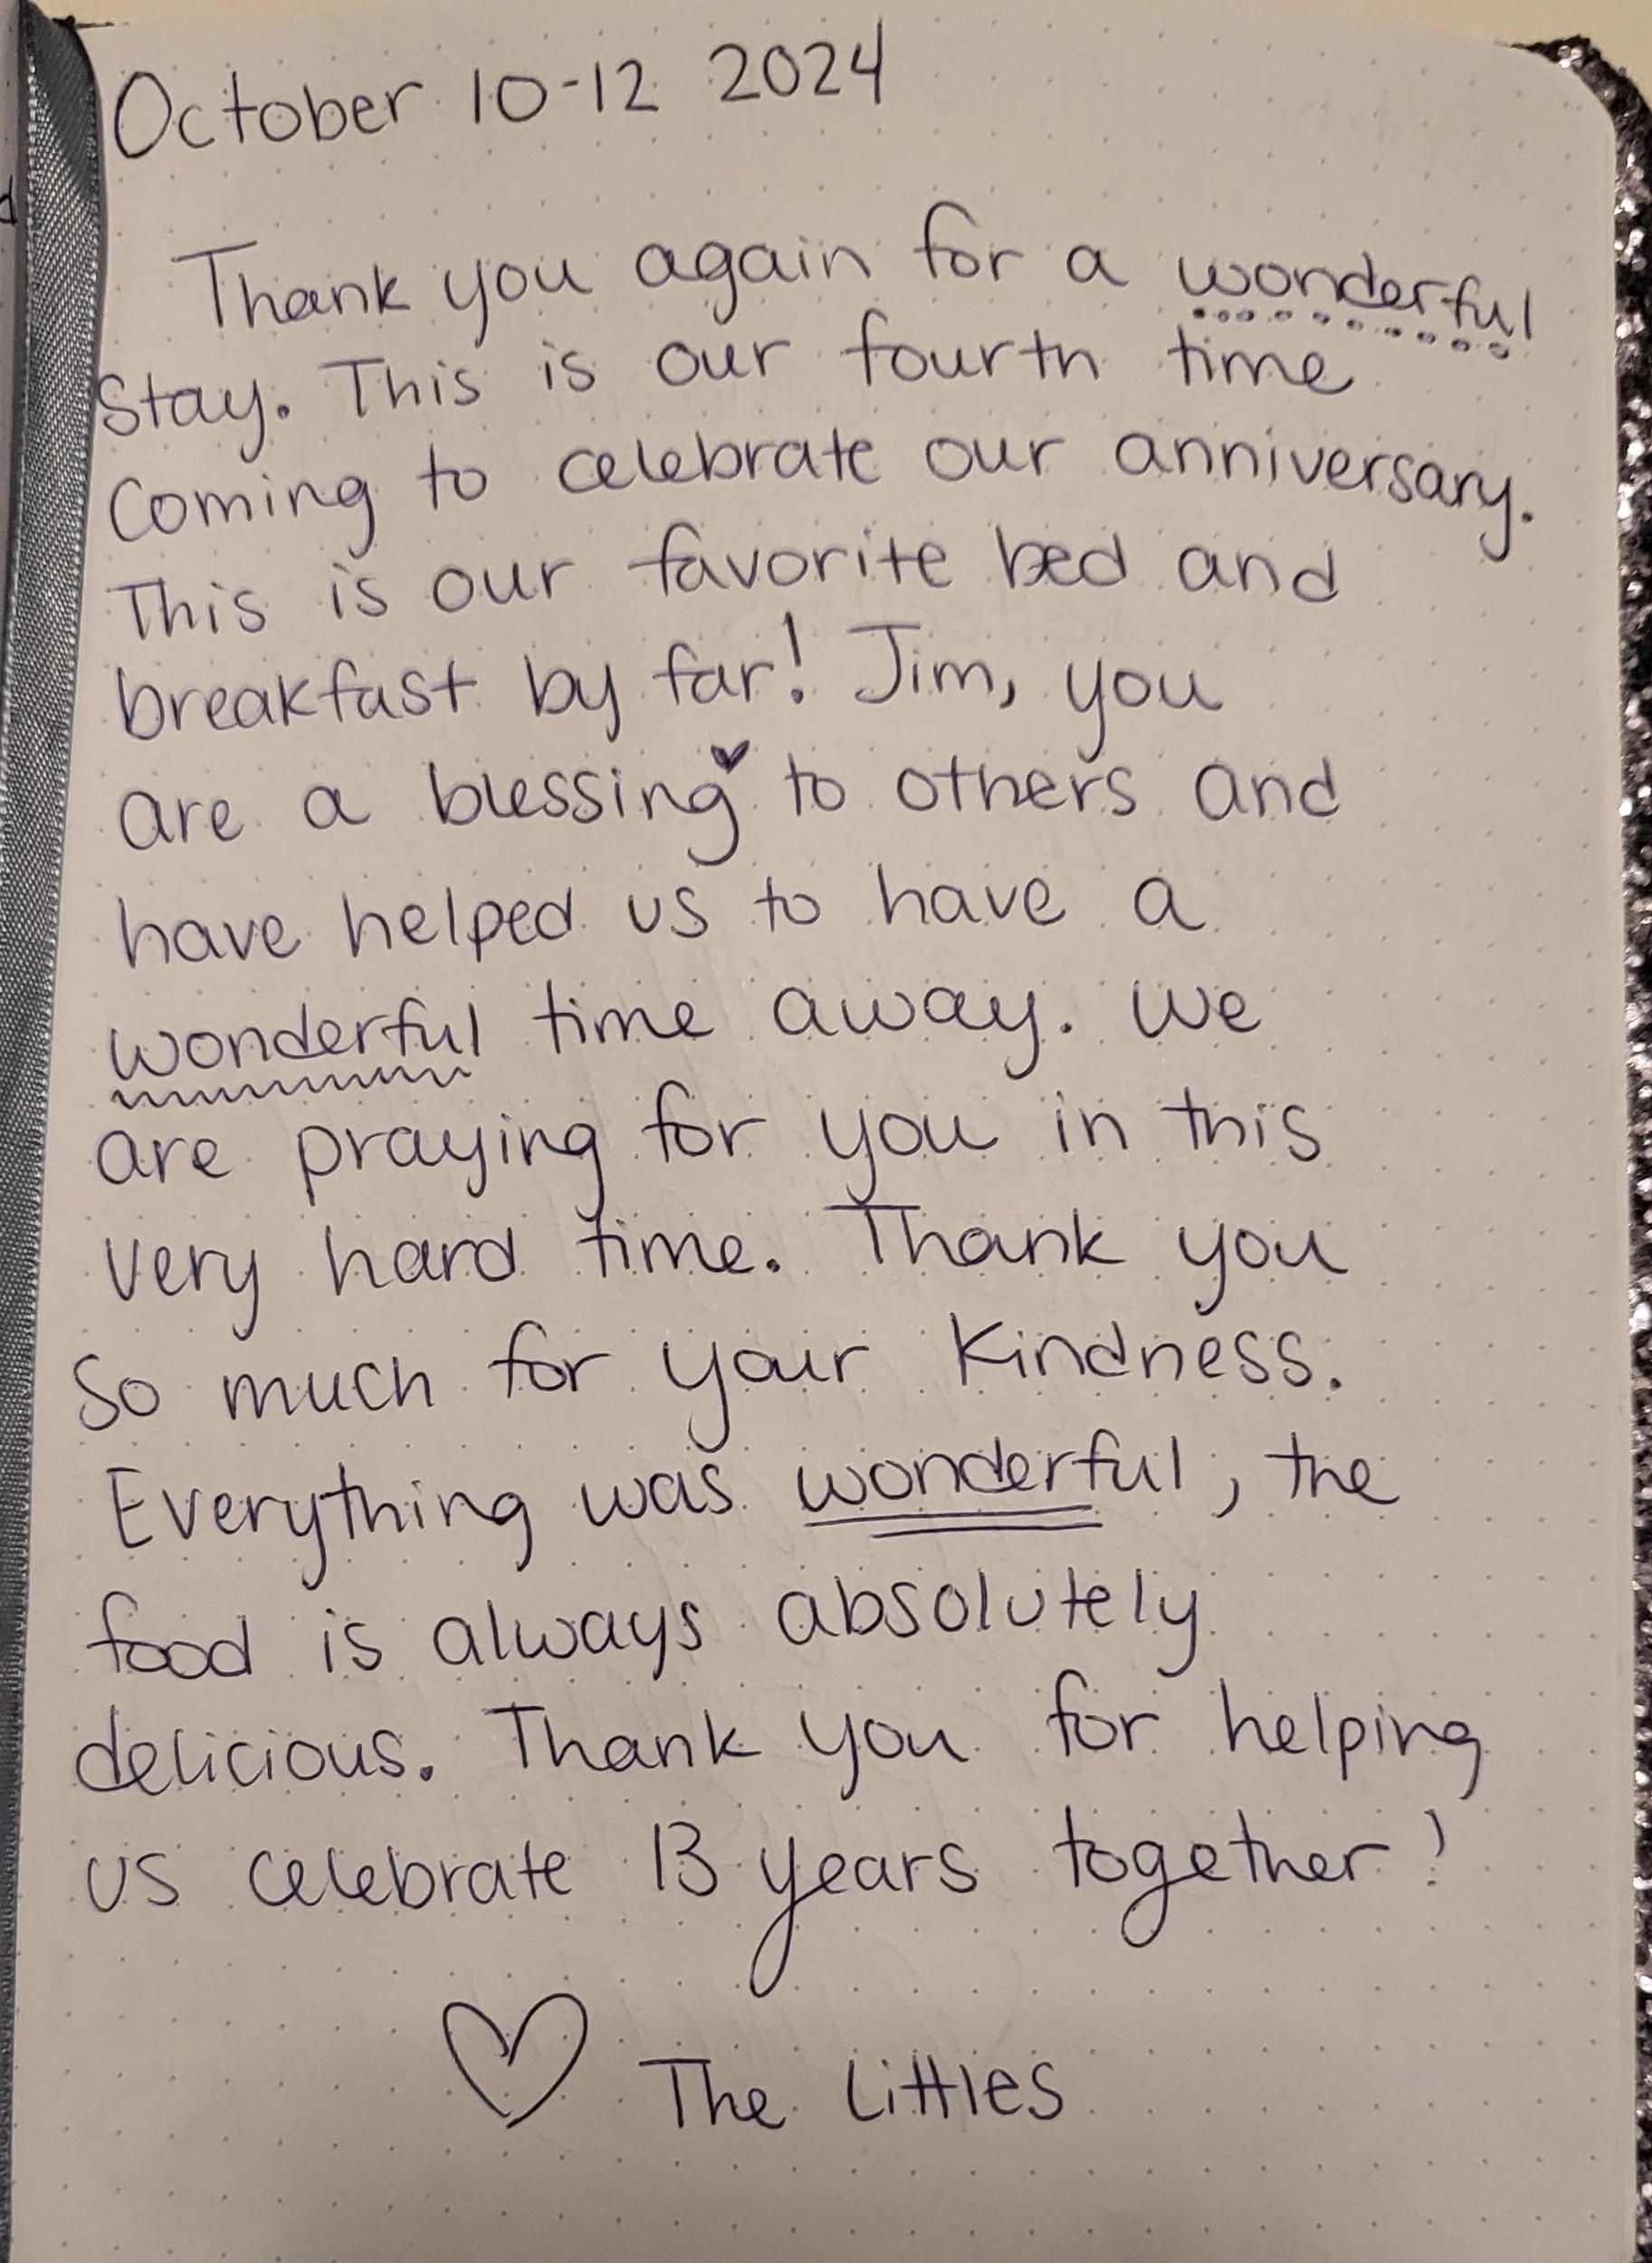 October 10-12 2024
Thank you again for a wonderful
stay. This is our fourth time
coming to celebrate our anniversary.
This is our favorite bed and
breakfast by far! Jim, you
are a blessing to others and
have helped us to have a
wonderful time away. We
are praying for you in this
very hard time. Thank you
so much for your kindness.
Everything was wonderful, the
food is always absolutely
delicious. Thank you for helping
us celebrate 13 years together!
The Littles